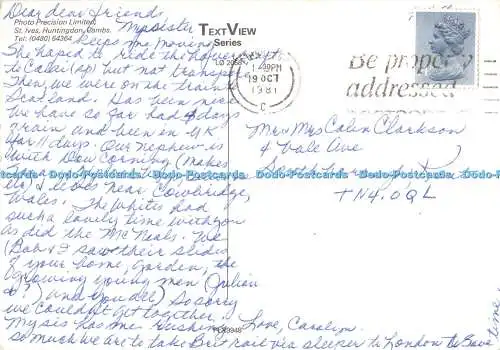 Dear dear friend,
My sister
keeps me moving.
She hoped to ride the hovercraft
to Calais (ap) but not transport
Then, we were on the train
Scotland. Has been nice
We have so far had 4 days
rain and been in UK
for 11 days. Our nephew is
with Dow Corning (makes
lives near Cowbridge,
Wales. The Whites had
such a lovely time with you
as did the McNeals. We
(Bob & I saw their slides
of your home, garden, the
growing young men (Julian
&?) and you all) So sorry
we couldn't get together.
My sis has me rushing Love, Carolyn.
so much we are to take Brit rail via sleeper to London to save
time,
Photo Precision Limited,
St. Ives, Huntingdon, Cambs.
Tel: (0480) 64364
TEXTVIEW
Series
PM
19 OCT
1981
C
Be properly
addressed
Mr & Mrs Colin Clarkson
4 Vale Ave
TN4.0QL
Dodo-Postcards Dodo-Postcards Dodo-Postcards Dodo-Postcards Dodo-Postcards Dodo-Postcards